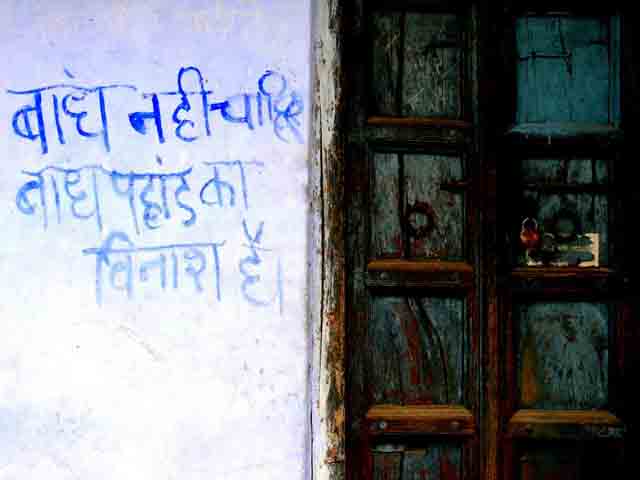 बांध नही चाहिए
बांध पहाड़ का
विनाश है।